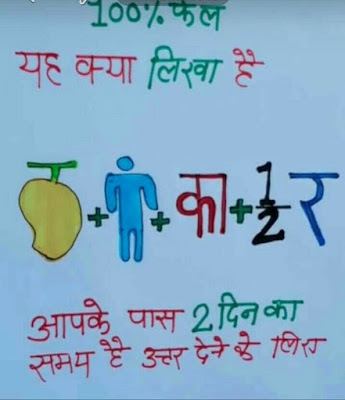 100% फेल
यह क्या लिखा है
+ + का + 1/2 र
आपके पास 2 दिन का
समय है उत्तर देने के लिए